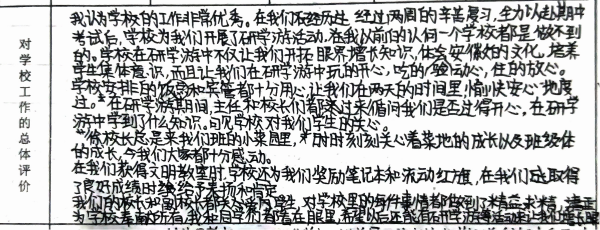 对学校工作的总体评价
我认为学校的工作非常优秀。在我们历经过两周的辛苦复习，全力以赴期中
考试后，学校为我们开展了研学游活动，在我以前的认何一个学校都是做不到
的。学校在研学游中不仅让我们开拓眼界增长知识，体会安保处的文化，培养
学生集体意识，而且让我们在研学游中玩的开心，吃的放心，住的放心。
学校安排的饭食和宾馆都十分用心，让我们在两天的时间里，愉快安心地度
过。在研学游期间，主任和校长们都来过来借问我们是否过得开心，在研学
游中学到了什么知识。可见学校对我们学生的关心。
校长总是来我们班的小菜园里，时时刻刻关心着菜地的成长以及班级体
的成长，令我们大家都十分感动。
在我们获得文明教室时，学校还为我们奖励笔记本和流动红旗，在我们取得
了良好成绩时给予表扬和肯定
我们的校长和副校长都关心学生，对学校里的每件事情都做到了精益求精，
为学校奉献所有，我和同学们都看在眼里，希望以后还能有研学游等活动来让我们增长眼